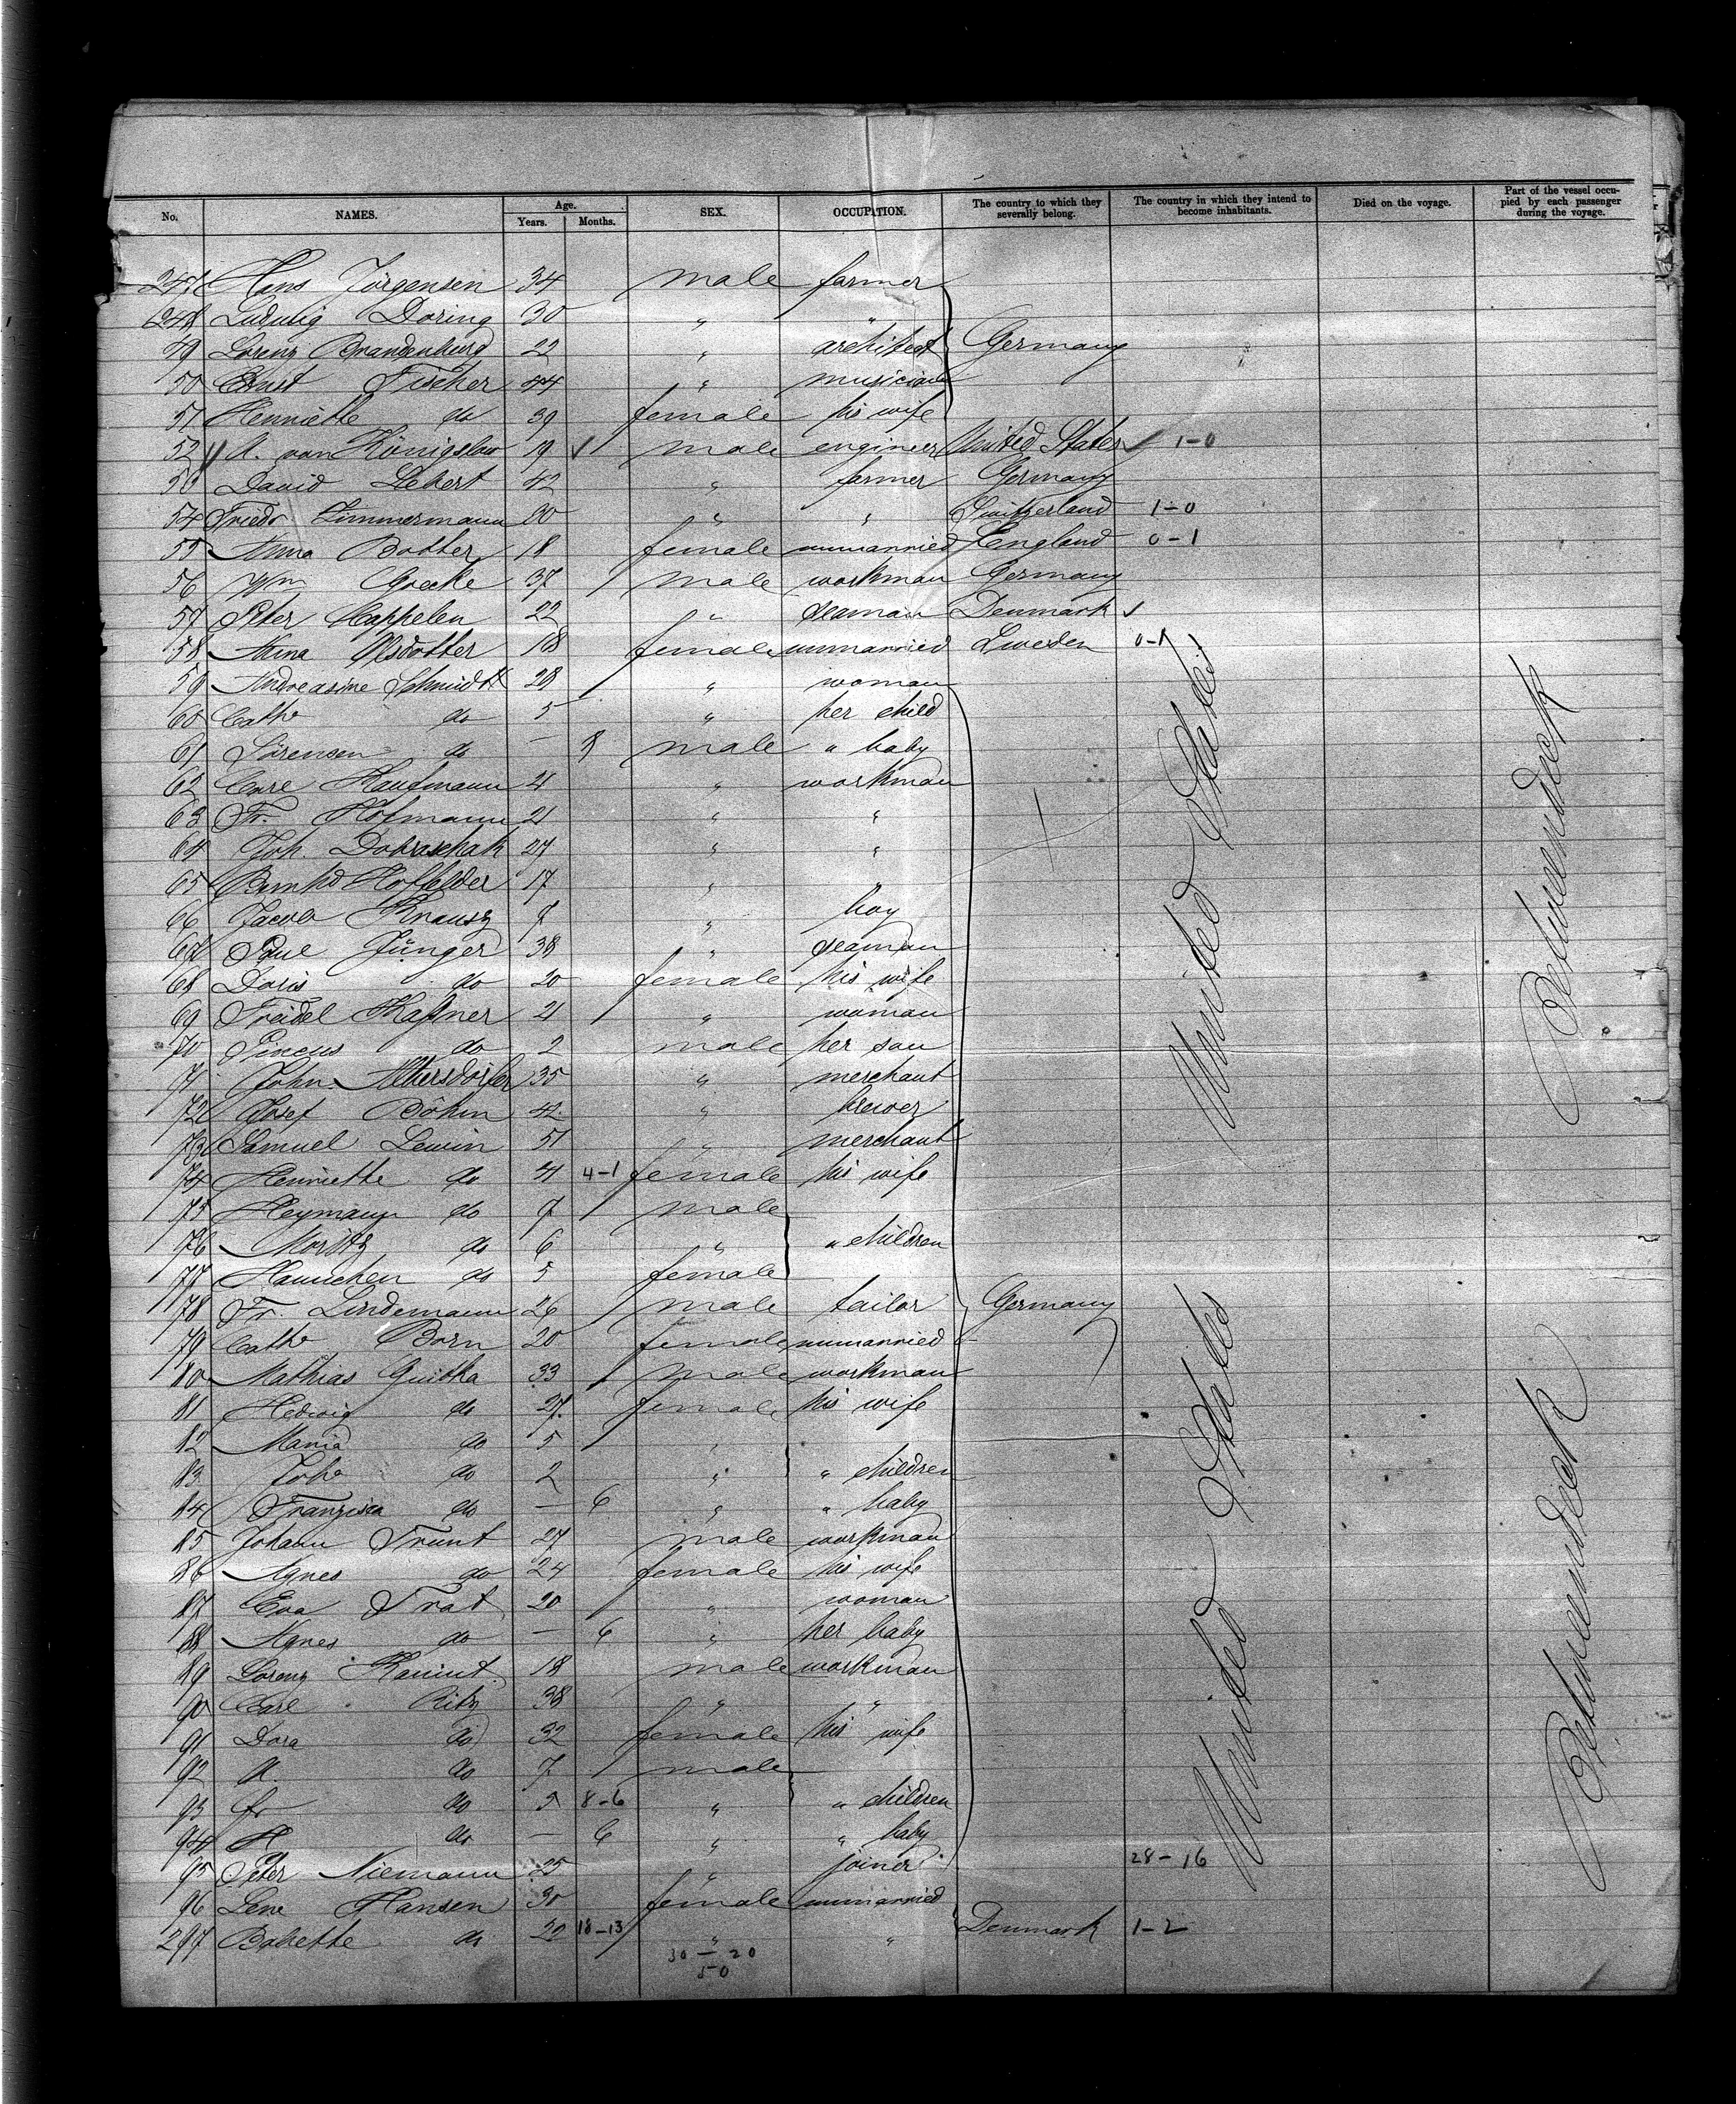 No. NAMES. Age. Years. Months. SEX. OCCUPATION. The country to which they severally belong. The country in which they intend to become inhabitants. Died on the voyage. Part of the vessel occupied by each passenger during the voyage.
247 Hans Jörgensen 34 male farmer
248 Ludwig Döring 30 " "
49 Lorenz Brandenburg 22 " architect Germany
50 Ernst Fischer 44 " musician
51 Henriette do 39 female his wife
52 A. von Königslow 19 ✓ male engineer United States ✓ 1-0
53 David 42 " farmer Germany
54 Friedr Zimmermann 80 " " Switzerland 1-0
55 Anna Botter 18 female unmarried England 0-1
56 Wm 37 male workman Germany
57 Peter Cappelen 22 " seaman Denmark ✓
58 Anna Olsdotter 18 female unmarried Sweden 0-1
59 Andreasine Schmidt 28 " woman
60 Cathe do 5 " her child
61 Sörensen do — 8 male " baby
62 Carl Kaufmann 21 " workman
63 Fr. Hofmann 21 " "
64 Joh. 27 " "
65 Bernhd Hoffelder 17 " "
66 Jacob Knausz 9 " boy
67 Paul Jünger 38 " seaman
68 Doris do 20 female his wife
69 Freidel 21 " woman
70 Pincus do 2 male her son
71 John 35 " merchant
72 Josef Böhm 42 " brewer
73 Samuel Lewin 51 " merchant
74 Henriette do 41 4-1 female his wife
75 Heymann do 7 male
76 Moritz do 6 " " children
77 Hannchen do 5 female
78 Fr. Lindemann 26 male tailor Germany
79 Cathe Born 20 female unmarried
80 Mathias Guitka 33 male workman
81 Hedwig do 27 female his wife
82 Maria do 5 "
83 Johe do 2 " " children
84 Franzisca do — 6 " " baby
85 Johann Trunt 27 male workman
86 Agnes do 24 female his wife
87 Eva Trat 20 " woman
88 Agnes do — 6 " her baby
89 Lorenz 18 male workman
90 Carl Ritz 38 " "
91 Dora do 32 female his wife
92 A. do 7 male
93 Fr do 5 8-6 " " children
94 H do — 6 " " baby
95 Peter Niemann 25 " joiner 28-16
96 Lene Hansen 30 female unmarried
297 Babette do 22 18-13 " " Denmark 1-2
30 — 20
50
United States
Betweendeck
United States
Betweendeck